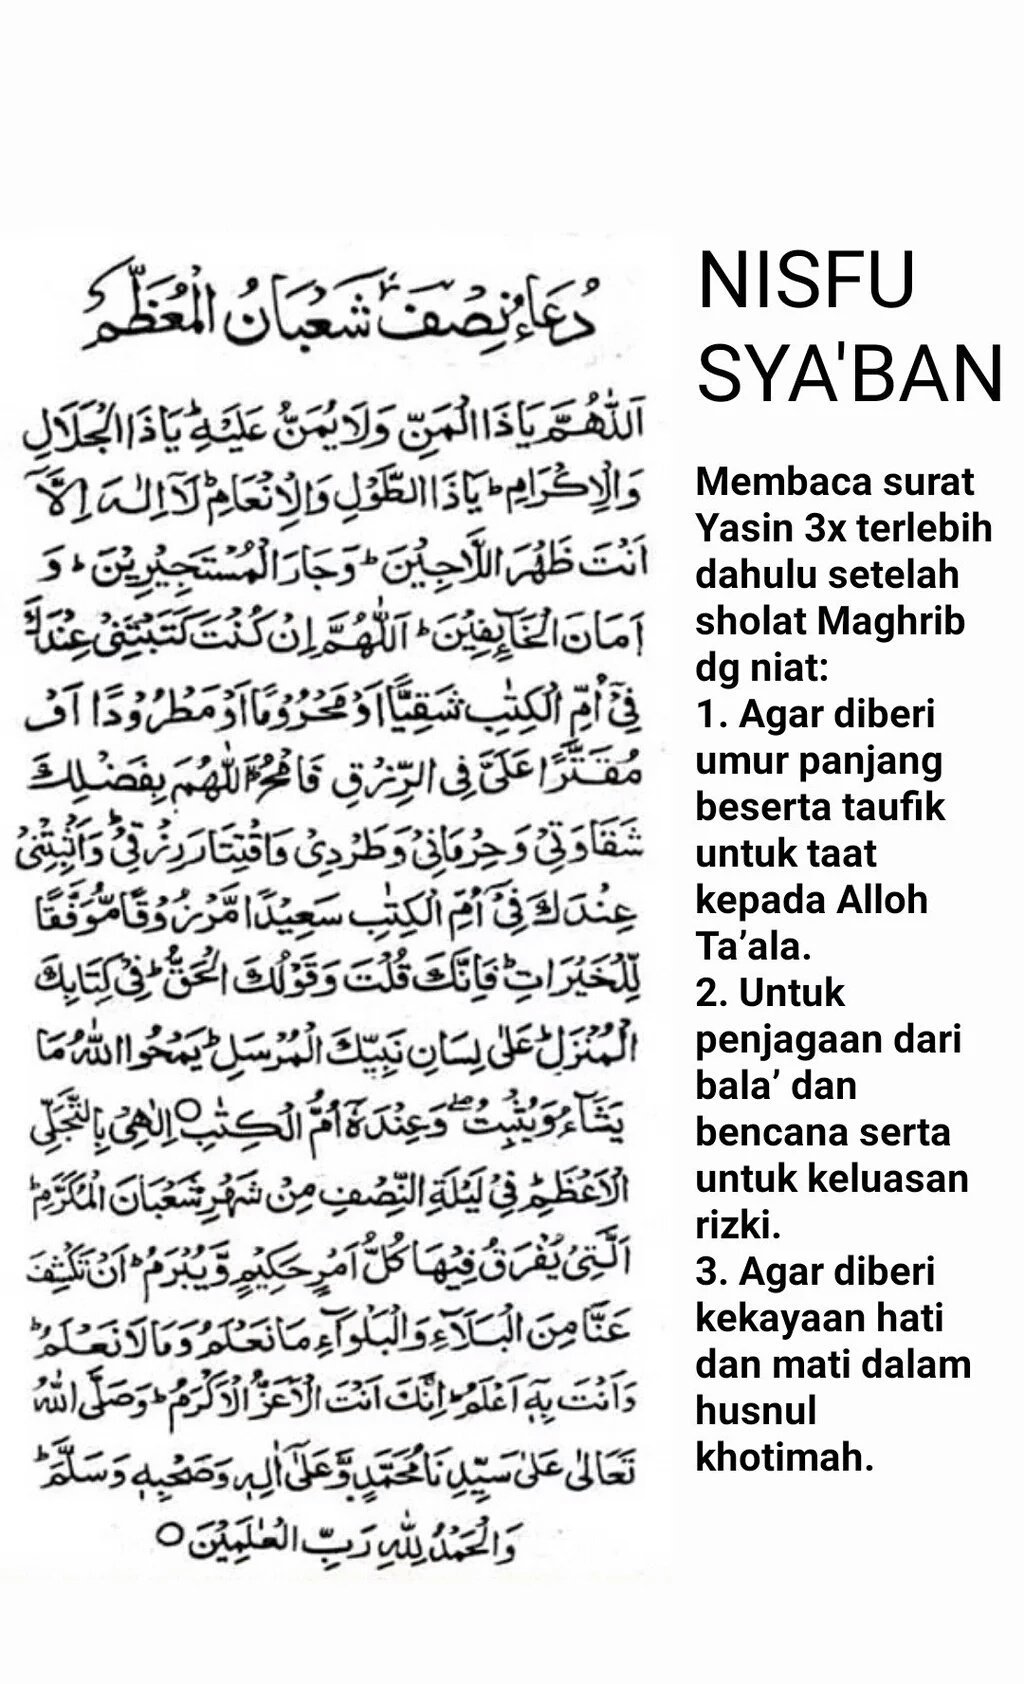 دُعَاءُ نِصْفَ شَعْبَانُ الْمُعَظَّمْ
اَللّٰهُمَّ يَاذَا الْمَنِّ وَلَا يُمَنُّ عَلَيْهِ ؕ يَاذَا الْجَلَالِ
وَالْاِكْرَامِ ؕ يَاذَا الطَّوْلِ وَالْاِنْعَامِ ؕ لَآ اِلٰهَ اِلَّآ
اَنْتَ ظَهْرَ اللَّاجِيْنَ ؕ وَجَارَ الْمُسْتَجِيْرِيْنَ ؕ وَ
اَمَانَ الْخَآئِفِيْنَ ؕ اَللّٰهُمَّ اِنْ كُنْتَ كَتَبْتَنِيْ عِنْدَكَ
فِيْٓ اُمِّ الْكِتٰبِ شَقِيًّا اَوْ مَحْرُوْمًا اَوْ مَطْرُوْدًا اَوْ
مُقَتَّرًا عَلَيَّ فِي الرِّزْقِ فَامْحُ اللّٰهُمَّ بِفَضْلِكَ
شَقَاوَتِيْ وَحِرْمَانِيْ وَطَرْدِيْ وَاقْتِتَارَ رِزْقِيْ ؕ وَاَثْبِتْنِيْ
عِنْدَكَ فِيْٓ اُمِّ الْكِتٰبِ سَعِيْدًا مَّرْزُوْقًا مُّوَفَّقًا
لِّلْخَيْرَاتِ ؕ فَاِنَّكَ قُلْتَ وَقَوْلُكَ الْحَقُّ ؕ فِيْ كِتَابِكَ
الْمُنْزَلِ ؕ عَلٰى لِسَانِ نَبِيِّكَ الْمُرْسَلِ ؕ يَمْحُوا اللّٰهُ مَا
يَشَآءُ وَيُثْبِتُ ۖ وَعِنْدَهٗٓ اُمُّ الْكِتٰبِ ○ اِلٰهِيْ بِالتَّجَلِّي
الْاَعْظَمِ ؕ فِيْ لَيْلَةِ النِّصْفِ مِنْ شَهْرِ شَعْبَانَ الْمُكَرَّمِ ؕ
الَّتِيْ يُفْرَقُ فِيْهَا كُلُّ اَمْرٍ حَكِيْمٍ وَّيُبْرَمُ ؕ اَنْ تَكْشِفَ
عَنَّا مِنَ الْبَلَآءِ وَالْبَلْوَآءِ مَا نَعْلَمُ وَمَا لَا نَعْلَمُ ؕ
وَاَنْتَ بِهٖٓ اَعْلَمُ ؕ اِنَّكَ اَنْتَ الْاَعَزُّ الْاَكْرَمُ ؕ وَصَلَّى اللّٰهُ
تَعَالٰى عَلٰى سَيِّدِنَا مُحَمَّدٍ وَّعَلٰٓى اٰلِهٖ وَصَحْبِهٖ وَسَلَّمَ ؕ
وَالْحَمْدُ لِلّٰهِ رَبِّ الْعٰلَمِيْنَ ○
NISFU
SYA'BAN
Membaca surat
Yasin 3x terlebih
dahulu setelah
sholat Maghrib
dg niat:
1. Agar diberi
umur panjang
beserta taufik
untuk taat
kepada Alloh
Ta’ala.
2. Untuk
penjagaan dari
bala’ dan
bencana serta
untuk keluasan
rizki.
3. Agar diberi
kekayaan hati
dan mati dalam
husnul
khotimah.